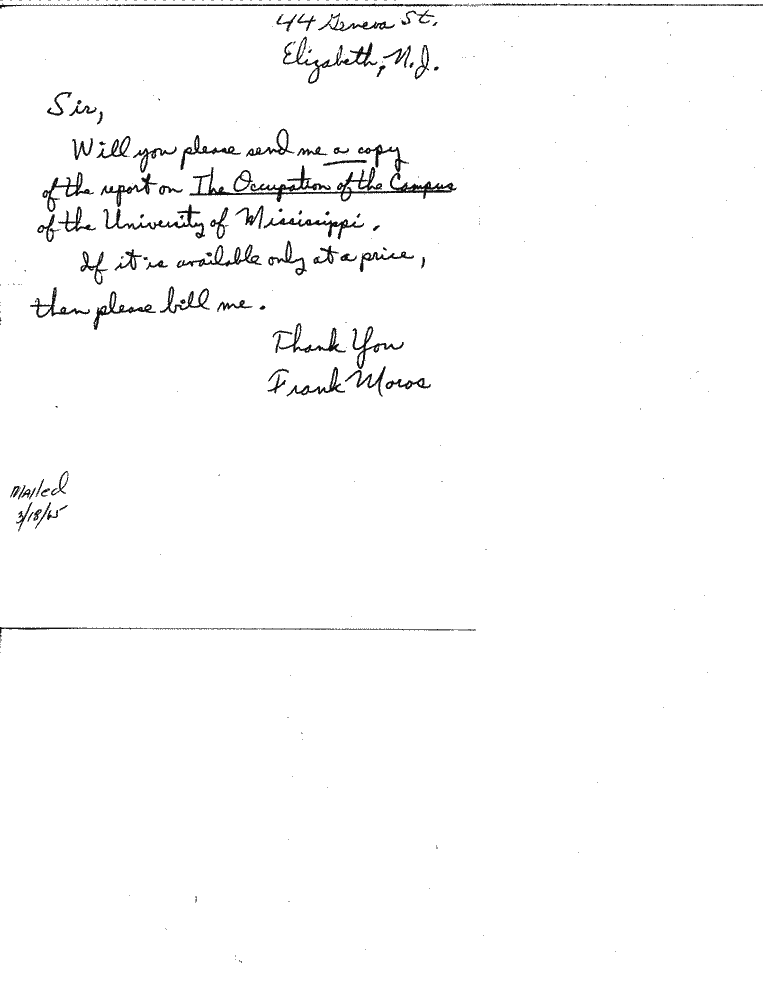 44 Geneva St.
Elizabeth, N.J.
Sir,
Will you please send me a copy
of the report on The Occupation of the Campus
of the University of Mississippi.
If it is available only at a price,
then please bill me.
Thank You
Frank
Mailed
3/18/65